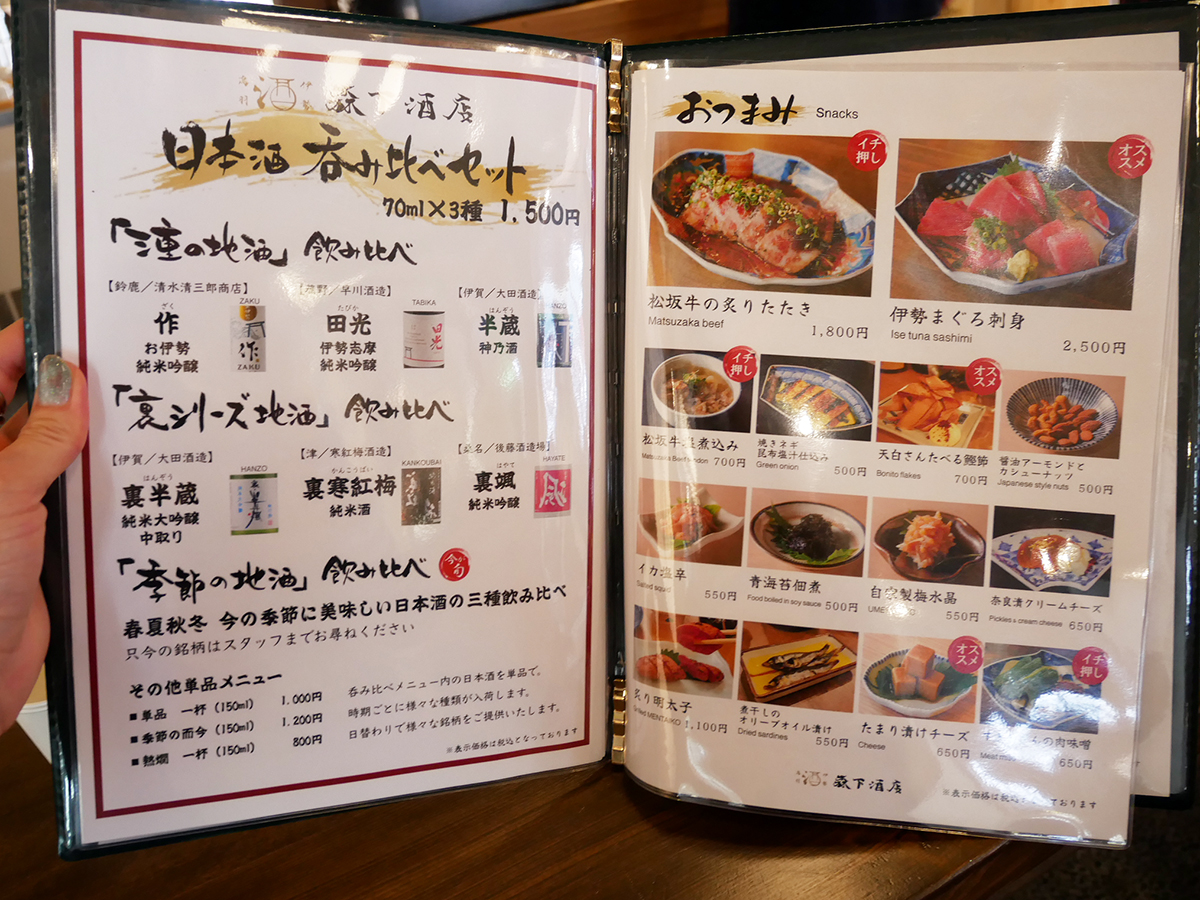 伊勢
鳥羽
酒
森下酒店
日本酒 呑み比べセット
70ml×3種 1,500円
「三重の地酒」飲み比べ
【鈴鹿/清水清三郎商店】
ざく
作
お伊勢
純米吟醸
ZAKU
作
ZAKU
早川酒造】
たびか
田光
伊勢志摩
純米吟醸
TABIKA
田光
【伊賀/大田酒造】
はんぞう
半蔵
神乃酒
「裏シリーズ地酒」飲み比べ
【伊賀/大田酒造】
はんぞう
裏半蔵
純米大吟醸
中取り
HANZO
【津/寒紅梅酒造】
かんこうばい
裏寒紅梅
純米酒
KANKOUBAI
【桑名/後藤酒造場】
はやて
裏颯
純米吟醸
HAYATE
颯
「季節の地酒」飲み比べ
今が旬
春夏秋冬 今の季節に美味しい日本酒の三種飲み比べ
只今の銘柄はスタッフまでお尋ねください
その他単品メニュー
■単品 一杯(150ml) 1,000円
■季節の而今(150ml) 1,200円
■熱燗 一杯(150ml) 800円
呑み比べメニュー内の日本酒を単品で。
時期ごとに様々な種類が入荷します。
日替わりで様々な銘柄をご提供いたします。
※表示価格は税込となっております
おつまみ Snacks
イチ押し
松坂牛の炙りたたき
Matsuzaka beef
1,800円
オススメ
伊勢まぐろ刺身
Ise tuna sashimi
2,500円
イチ押し
松坂牛塩煮込み
700円
焼きネギ
昆布塩汁仕込み
Green onion
500円
オススメ
天白さんたべる鰹節
Bonito flakes
700円
醤油アーモンドと
カシューナッツ
Japanese style nuts 500円
イカ塩辛
Salted squid
550円
青海苔佃煮
Food boiled in soy sauce 500円
自家製梅水晶
550円
奈良漬クリームチーズ
Pickles & cream cheese 650円
炙り明太子
Grilled MENTAIKO 1,100円
煮干しの
オリーブオイル漬け
Dried sardines 550円
オススメ
たまり漬けチーズ
Cheese
650円
イチ押し
の肉味噌
650円
森下酒店
※表示価格は税込となっております